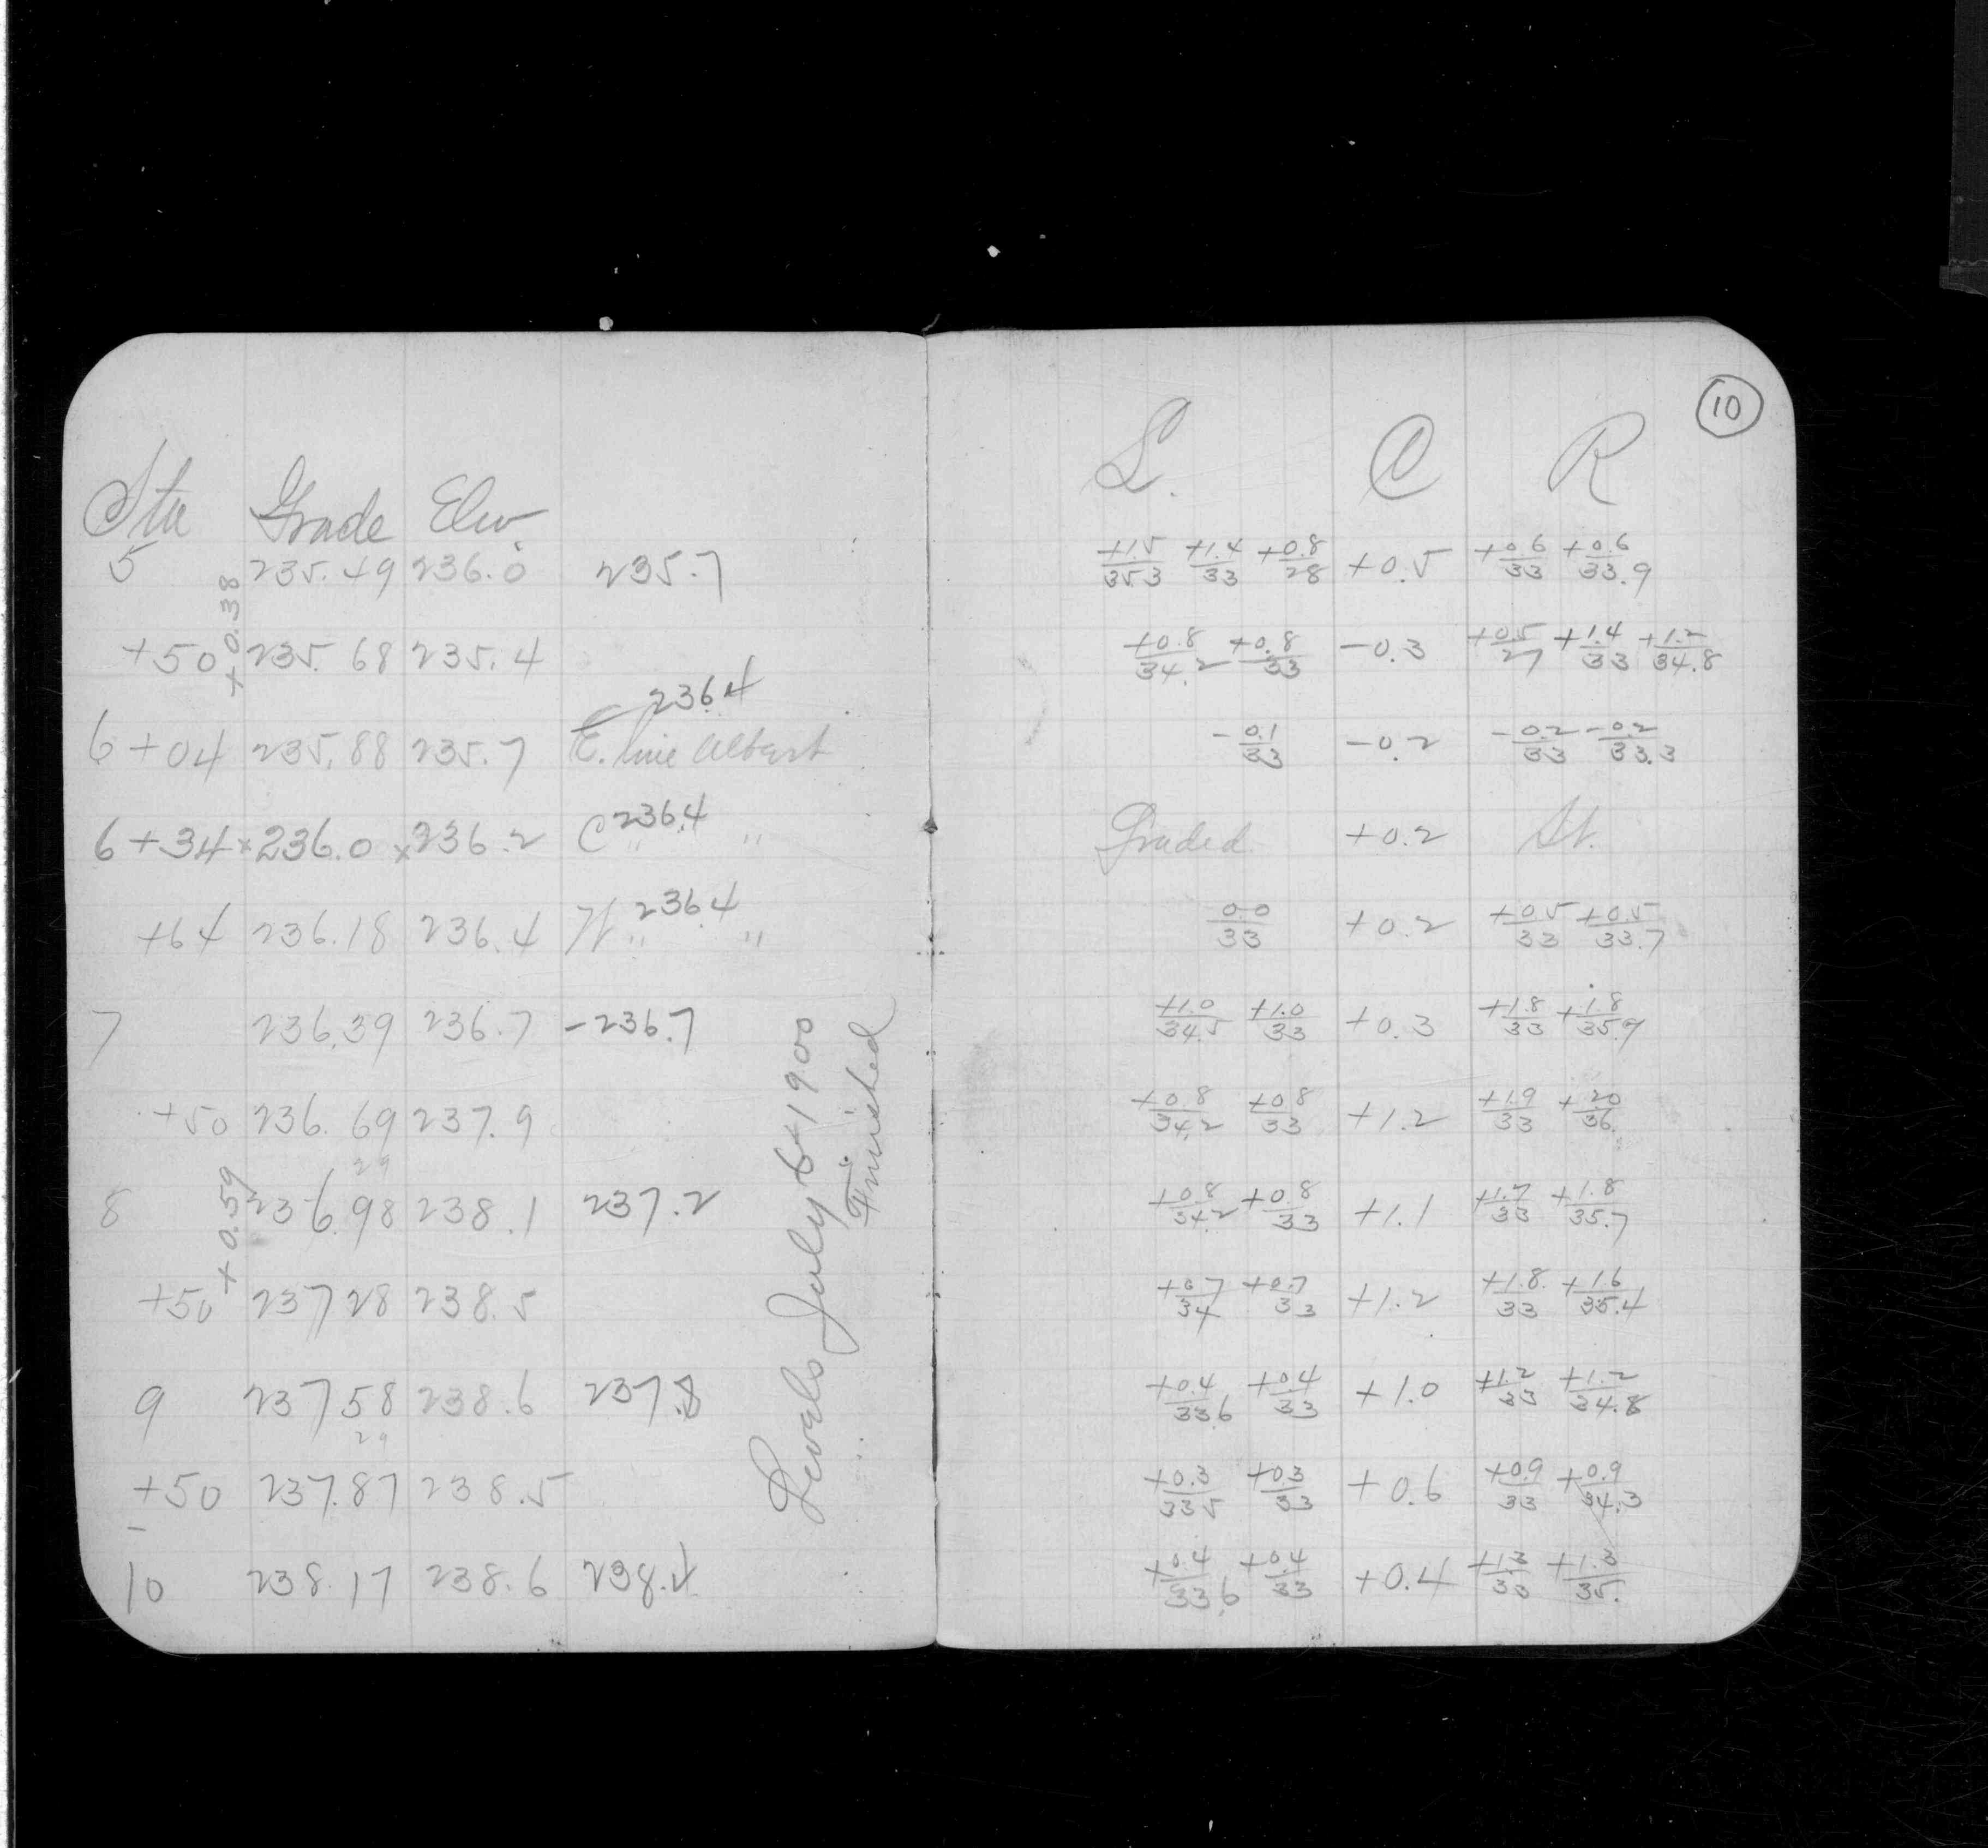 Sta Grade Elev.
5 235.49 236.0 235.7
+0.38
+50 235.68 235.4
236.4
6+04 235.88 235.7 E. line Albert
6+34 x236.0 x236.2 C 236.4 " "
+64 236.18 236.4 W 236.4 " "
7 236.39 236.7 -236.7
+50 236.69 237.9
29
8 236.98 238.1 237.2
+0.59
+50 237 28 238.5
9 237 58 238.6 237.8
29
+50 237.87 238.5
10 238.17 238.6 238.4
Levels July 6-1900
Finished
10
L. C R
+1.5/35.3 +1.4/33 +0.8/28 +0.5 +0.6/33 +0.6/33.9
+0.8/34.2 +0.8/33 -0.3 +0.5/27 +1.4/33 +1.2/34.8
-0.1/33 -0.2 -0.2/33 -0.2/33.3
Graded. +0.2 St.
0.0/33 +0.2 +0.5/33 +0.5/33.7
+1.0/34.5 +1.0/33 +0.3 +1.8/33 +1.8/35.9
+0.8/34.2 +0.8/33 +1.2 +1.9/33 +20/36.
+0.8/34.2 +0.8/33 +1.1 +1.7/33 +1.8/35.7
+0.7/34 +0.7/33 +1.2 +1.8/33 +1.6/35.4
+0.4/33.6 +0.4/33 +1.0 +1.2/33 +1.2/34.8
+0.3/33 5 +0.3/33 +0.6 +0.9/33 +0.9/34.3
+0.4/33.6 +0.4/33 +0.4 +1.3/33 +1.3/35.